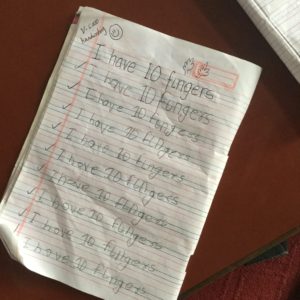 I have 10 fingers
I have 10 fingers
I have 10 fingers
I have 10 fingers
I have 10 fingers
I have 10 fingers
I have 10 fingers
I have 10 fingers
I have 10 fingers
I have 10 fingers